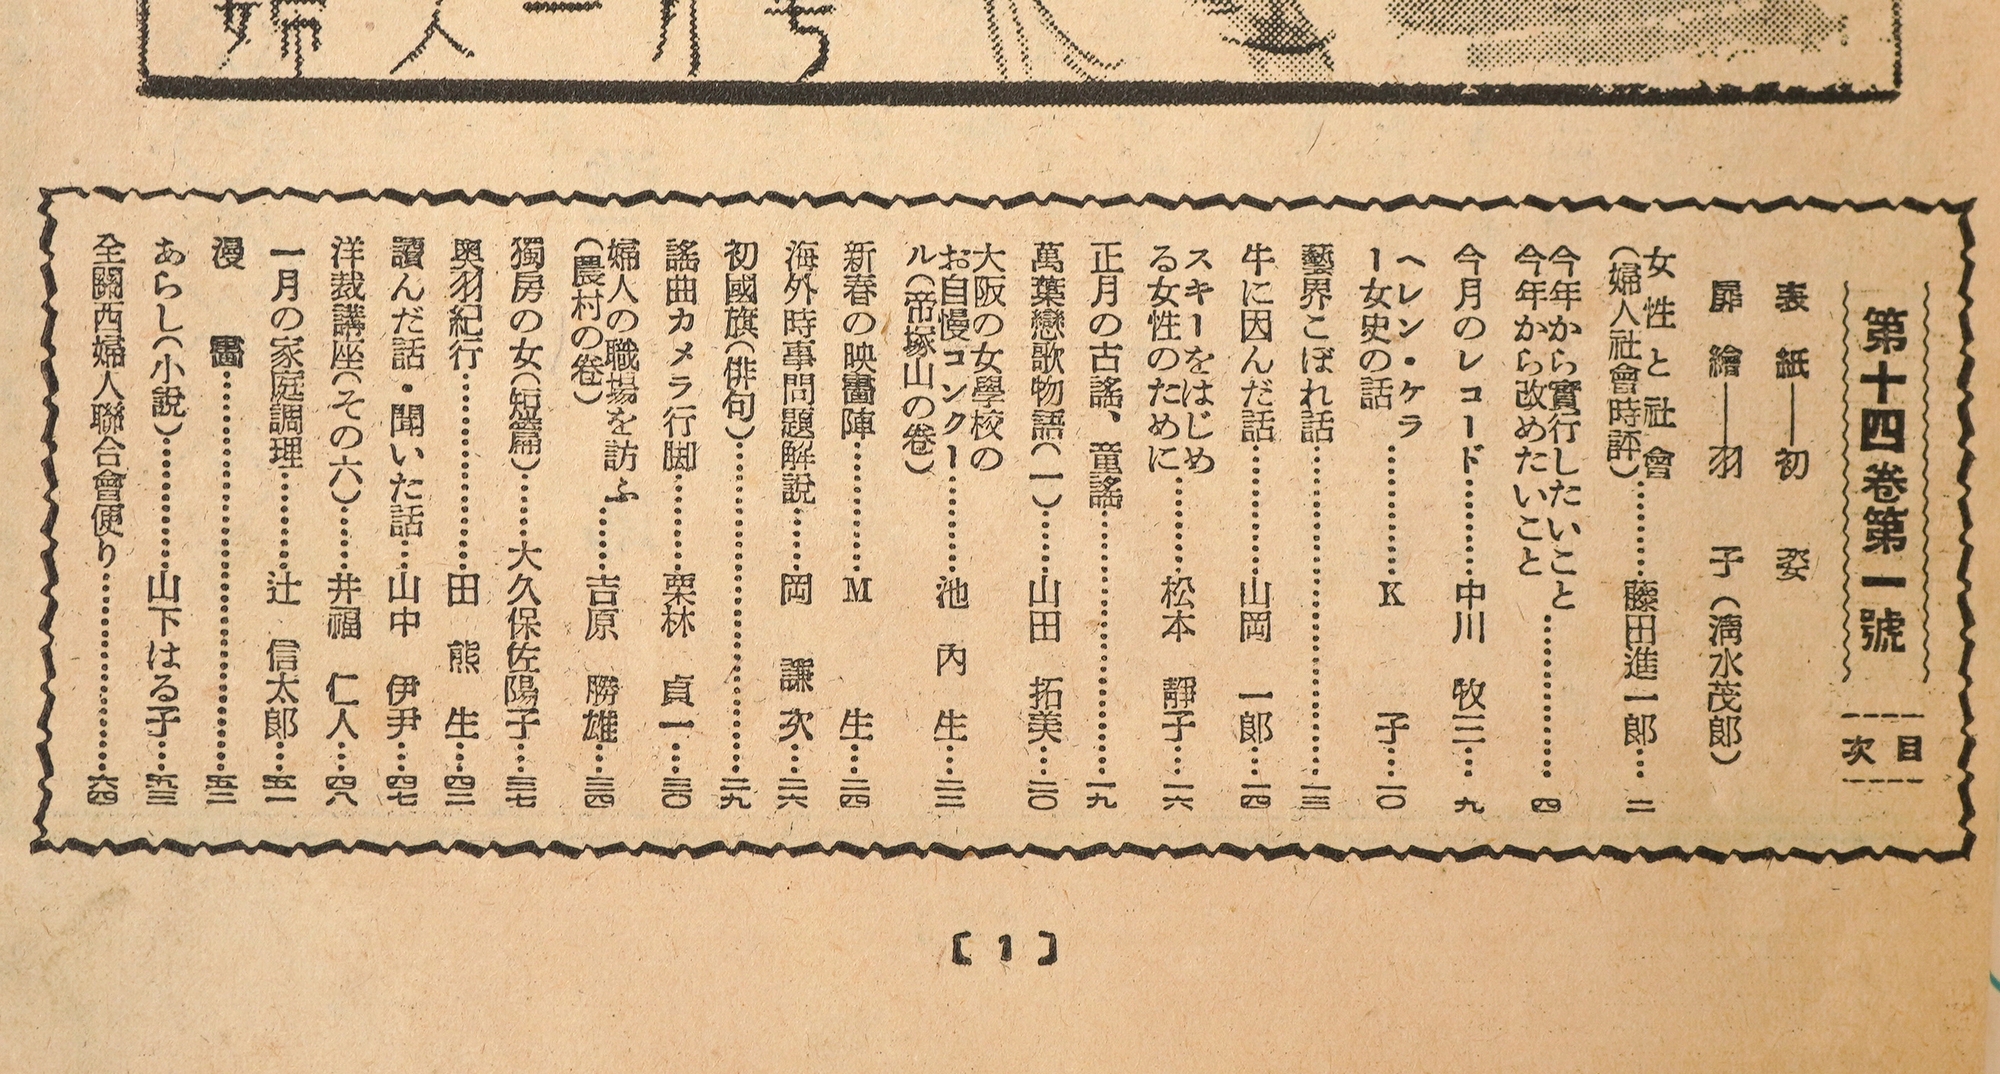 婦人一月号
第十四卷第一號
目次
表紙――初姿
扉繪――羽子(淸水茂郎)
女性と社會
(婦人社會時評)………藤田進一郎…二
今年から實行したいこと
今年から改めたいこと………四
今月のレコード………中川 牧三…九
ヘレン・ケラ
ー女史の話………K 子…一〇
藝界こぼれ話………一三
牛に因んだ話………山岡 一郎…一四
スキーをはじめ
る女性のために………松本 靜子…一六
正月の古謠、童謠………一九
萬葉戀歌物語(一)………山田 拓美…二〇
大阪の女學校の
お自慢コンクー
ル(帝塚山の卷)………池內生…二二
新春の映畫陣………M 生…二四
海外時事問題解說………岡 謙次…二六
初國旗(俳句)………二九
謠曲カメラ行脚………栗林 貞一…三〇
婦人の職場を訪ふ
(農村の卷)………吉原 勝雄…三四
獨房の女(短篇)………大久保佐陽子…三七
奧羽紀行………田熊生…四二
讀んだ話・聞いた話…山中 伊尹…四七
洋裁講座(その六)……井福 仁人…四八
一月の家庭調理………辻 信太郎…五一
漫畫………五二
あらし(小說)………山下はる子…五三
全關西婦人聯合會便り………六四
〔1〕